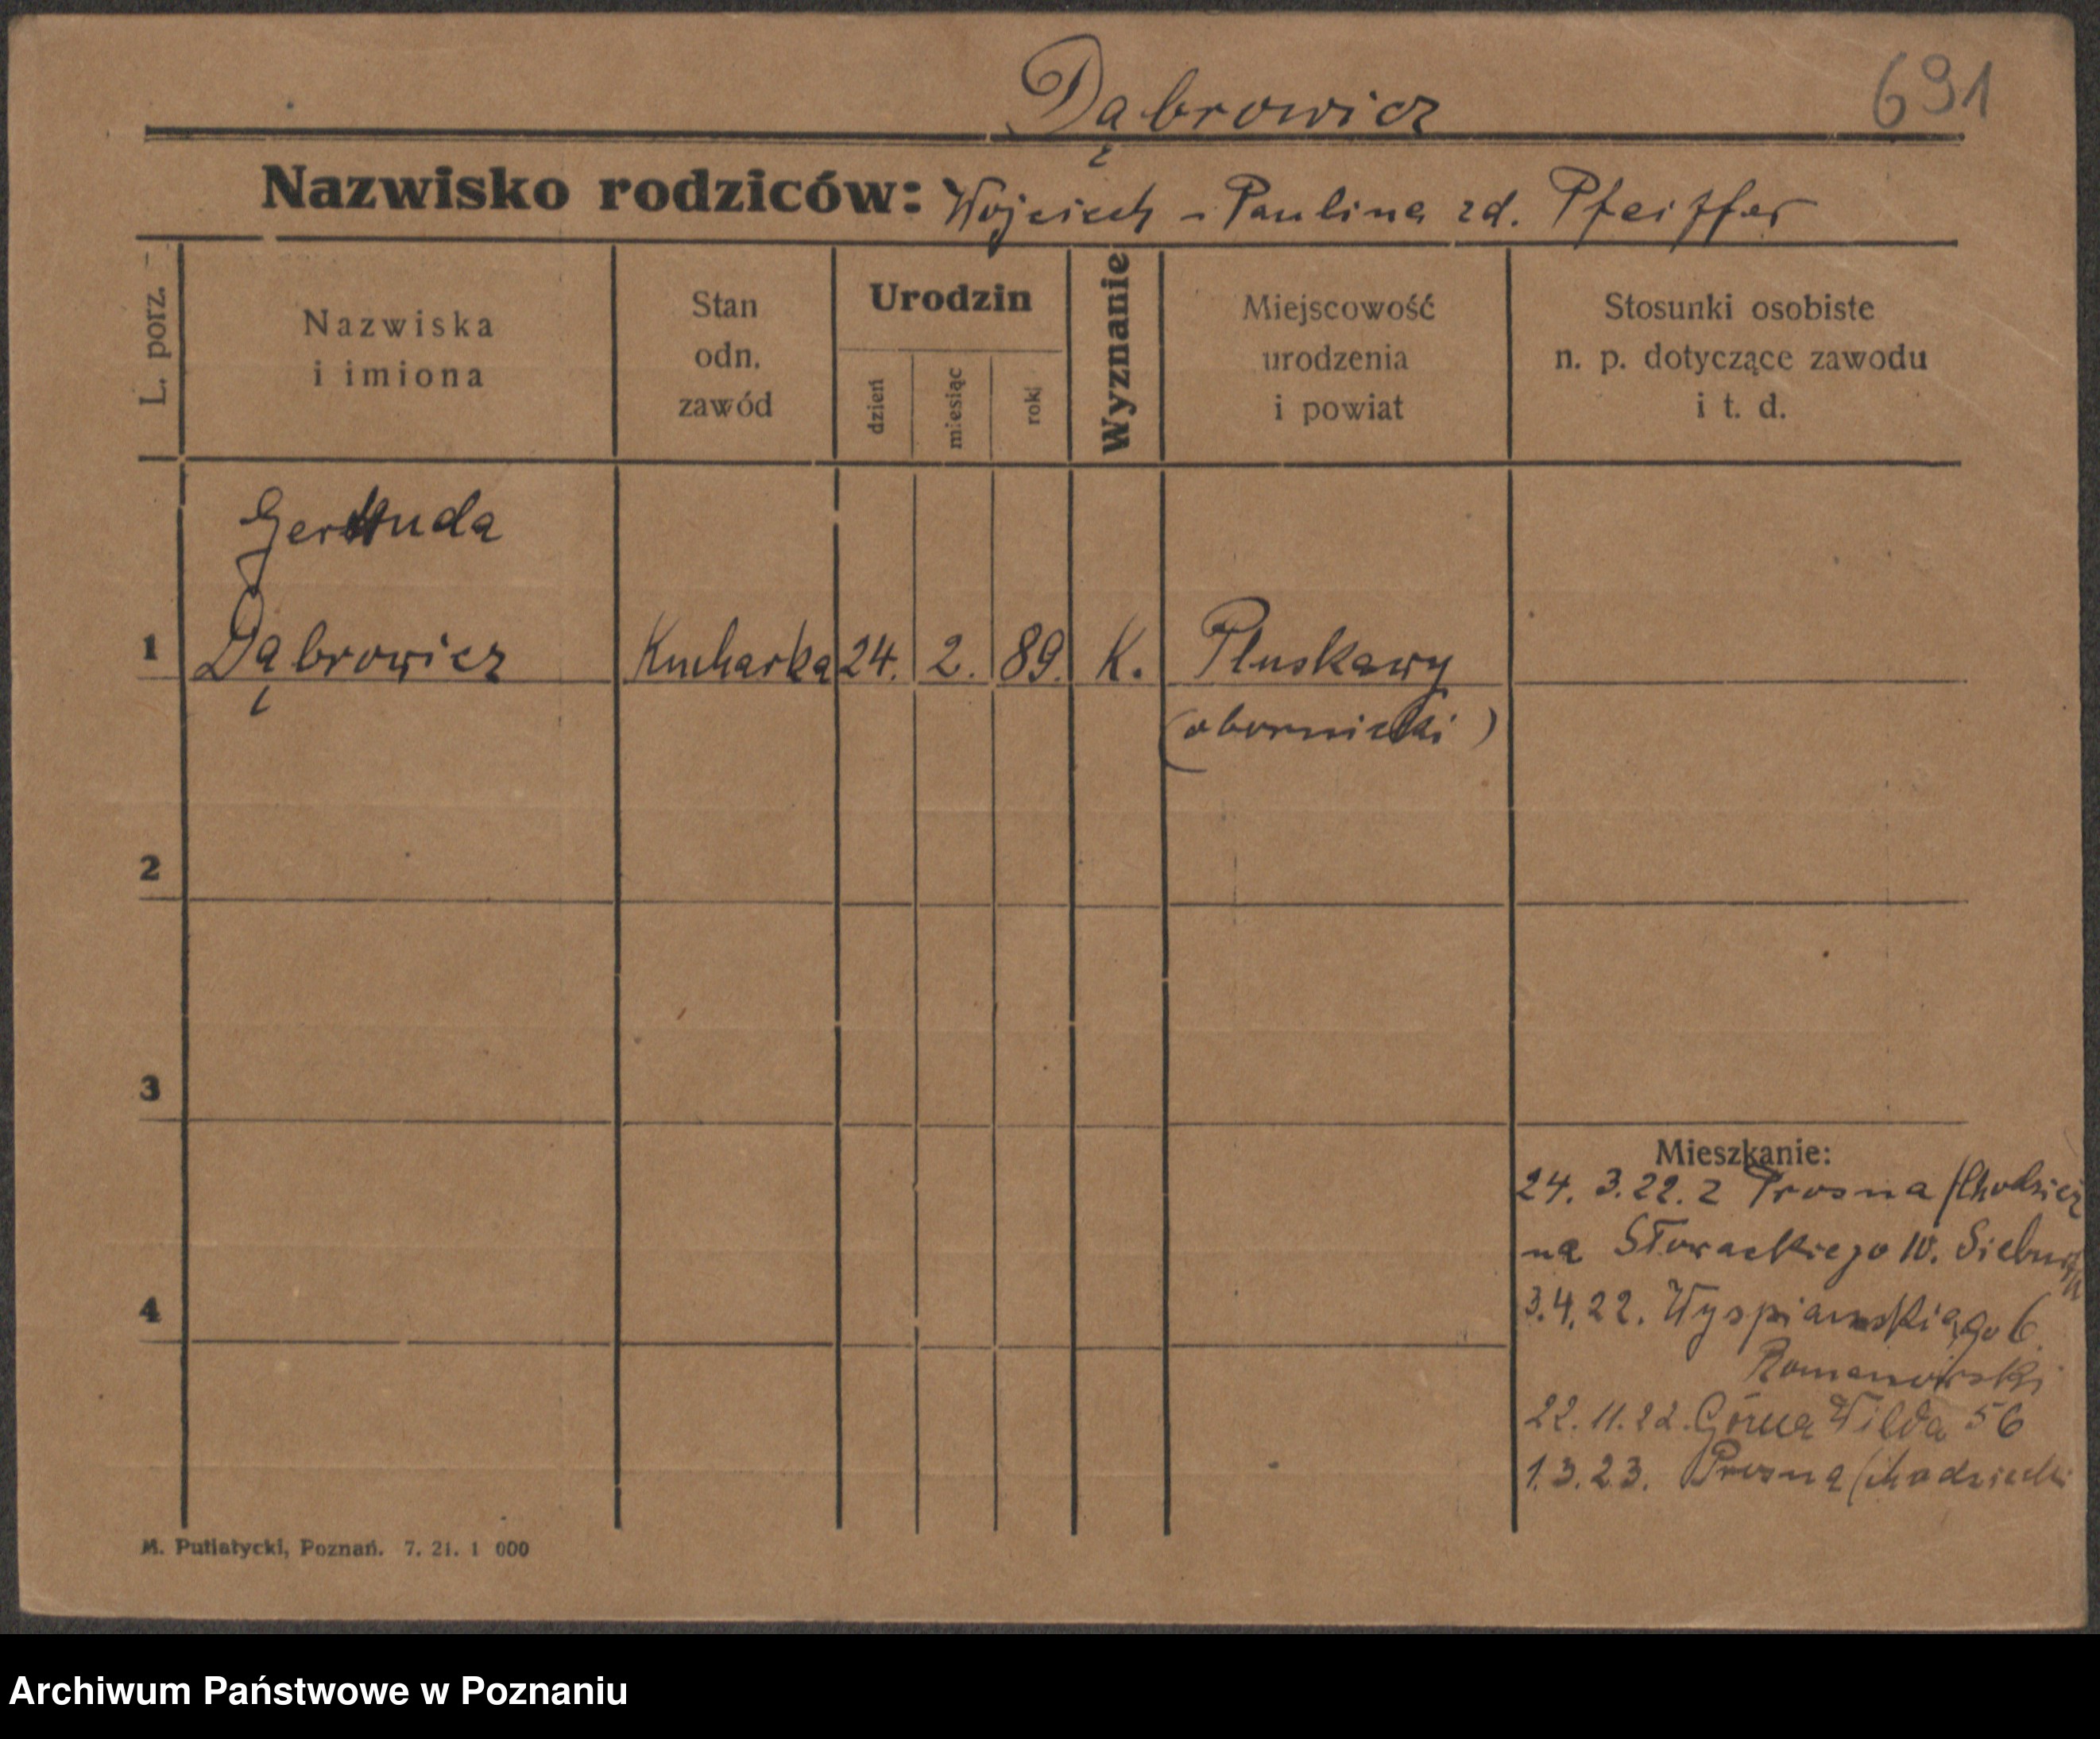 Dąbrowicz
691
Nazwisko rodziców: Wojciech - Paulina zd. Pfeiffer
L. porz.
Nazwiska
i imiona
Stan
odn.
zawód
Urodzin
dzień
miesiąc
rok
Wyznanie
Miejscowość
urodzenia
i powiat
Stosunki osobiste
n. p. dotyczące zawodu
i t. d.
Gertruda
1 Dąbrowicz Kucharka 24. 2. 89. K. Pluskawy
(obornicki)
2
3
Mieszkanie:
24. 3.22. z Prosna /Chodzież
na Słowackiego 10.
3.4.22. Wyspianskiego 6.
4
Romanowski
22.11.22. Górna Wilda 56
1.3.23. Prosna (chodzieski
M. Putiatycki, Poznań. 7. 21. 1 000
Archiwum Państwowe w Poznaniu